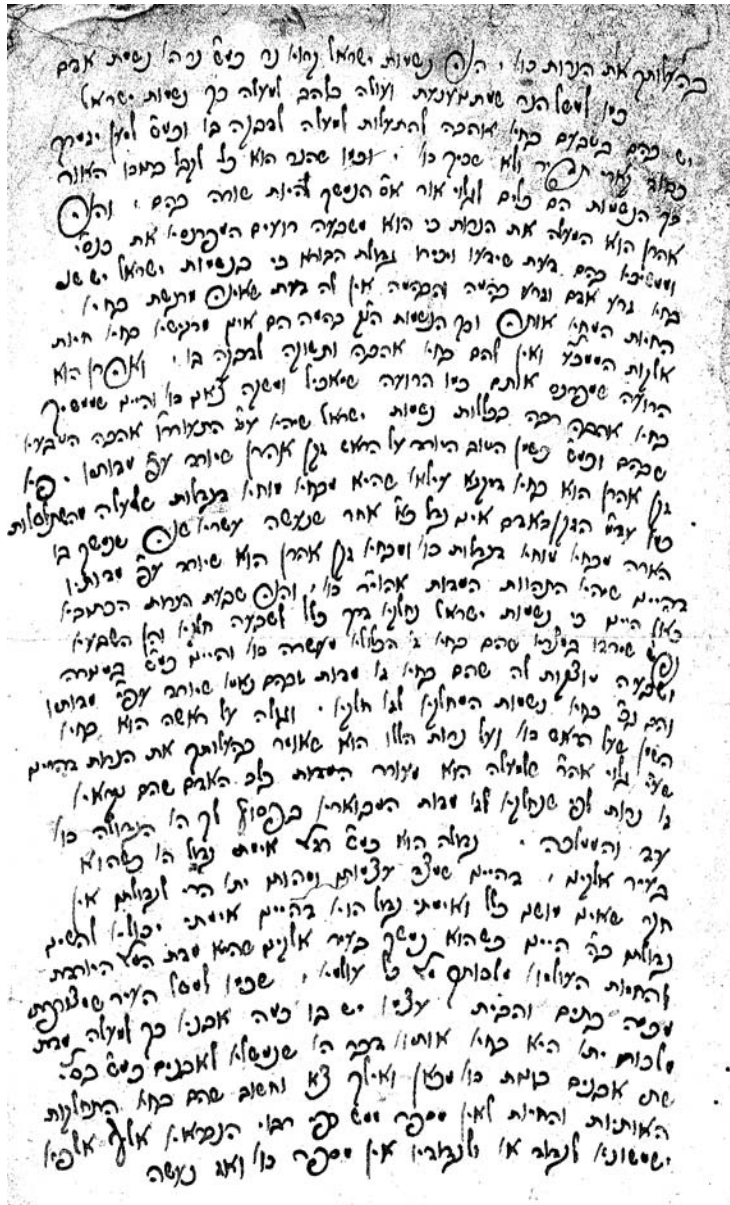 בהעלותך את הנרות כו' הנה נשמות ישראל נקרא נר כמ"ש נר ה' נשמת אדם
כמו למשל הנר שמתנענעת ועולה כלהב למעלה כך נשמות ישראל
יש בהם בטבעם בחי' אהבה להתעלות למעלה לדבקה בו וכמ"ש למען יזמרך
כבוד ולא כו' וכמו שהנר הוא כלי לקבל בתוכו האור
כך הנשמות הם כלים לגלוי אור הנמשך להיות שורה בהם והנה
אהרן הוא המעלה את הנרות כי הוא משבעה רועים המפרנסי' את כנס"י
וממשיכי' בהם דעת שידעו ויכירו גדולת הבורא כי בנשמות ישראל יש שני
בחי' זרע אדם וזרע בהמה והבהמה אין לה דעת שאינה מרגשת בחי'
החיות המחי' אותה וכך הנשמות בהמה הם אינם מרגישי' בחי' חיות
אלקות ואין להם בחי' אהבה ותשוקה לדבקה בו ואהרן הוא
הרועה שמפרנס אותם כמו הרועה שמאכיל ומשקה צאנו כו' והיינו שממשיך
בחי' אהבה רבה בכללות נשמות ישראל שיהי' התעוררו' אהבה הטבעי'
שבהם וכמ"ש כשמן הטוב היורד על הראש זקן אהרן שיורד ע"פ מדותיו פי'
זקן אהרן הוא בחי' דיקנא עילאה שהיא מבחי' מוחי' דגדלות שלמעלה מהשתלשלות
כמו הזקן באדם אינו גדל כ"א אחר שנעשה שנה שנמשך בו
הארה מבחי' מוחי' דגדלות כו' ומבחי' זקן אהרן הוא שיורד ע"פ מדותיו
דהיינו שיהי' התהוות המדות כו' והנה שבעת הנרות
היינו כי נשמות ישראל נחלקו דרך כלל לשבעה חלקי' והן השבעי'
נפש שירדו שהם בחי' ז' הכלולי' מעשרה כו' והיינו כמ"ש במנורה
ושבעה מוצקות לה שהם בחי' ז' מדות שבהם שיורד ע"פ מדותיו
והם בחי' נשמות המחלקי' לז' חלקי' וגולה על ראשה הוא בחי'
השמן שעל הראש כו' ועל נרות הללו הוא שאומר בהעלותך את הנרות דהיינו
שע"י גלוי שלמעלה הוא מעורר המדות בלב האדם שהם נקראי'
ז' נרות לפי שנחלקי' לז' מדות המבוארי' בפסוק לך ה' הגדולה כו'
עד והממלכה גדולה הוא כמ"ש אימתי גדול ה' כשהוא
בעיר אלקינו דהיינו שמצד עצמותו ומהותו ית' הרי לגדולתו אין
חקר שאינו מושג כלל ואימתי גדול הוי' דהיינו אימתי יכולי' להשיג
גדולתו היינו כשהוא נמשך בעיר אלקינו שהוא מדת היורדת
להחיות העולמו' מלכותך כל עולמי' שכמו למשל העיר שמצטרפת
מכמה בתים והבית עצמו יש בו כמה אבני' כך למעלה מדת
מלכותו ית' היא בחי' אותיו' דבר ה' שנמשלו לאבנים
שתי אבנים בונות כו' מכאן ואילך צא וחשוב שהם בחי' התחלקות
האותיות והחיות לאין מספר ממש כפי רבוי הנבראי' אלף אלפי'
ישמשוני' לגדוד א' ולגדודיו אין מספר כו' ואז נעשה